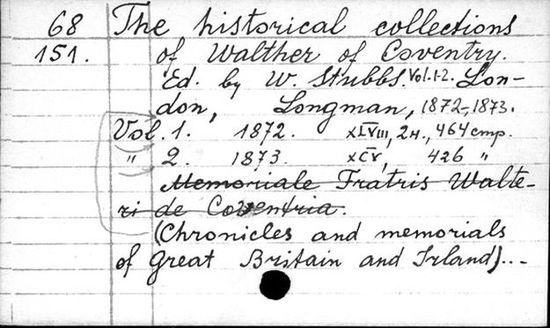 68 The historical collections
151. of Walther of Coventry.
Ed. by W. Stubbs. Vol. 1-2. Lon-
don, Longman, 1872-1873.
Vol. 1. 1872. XLVIII, 2н., 464 стр.
" 2. 1873. XCV, 426 "
Memoriale Fratris Walte-
ri de Coventria.
(Chronicles and memorials
of great Britain and Irland)..-